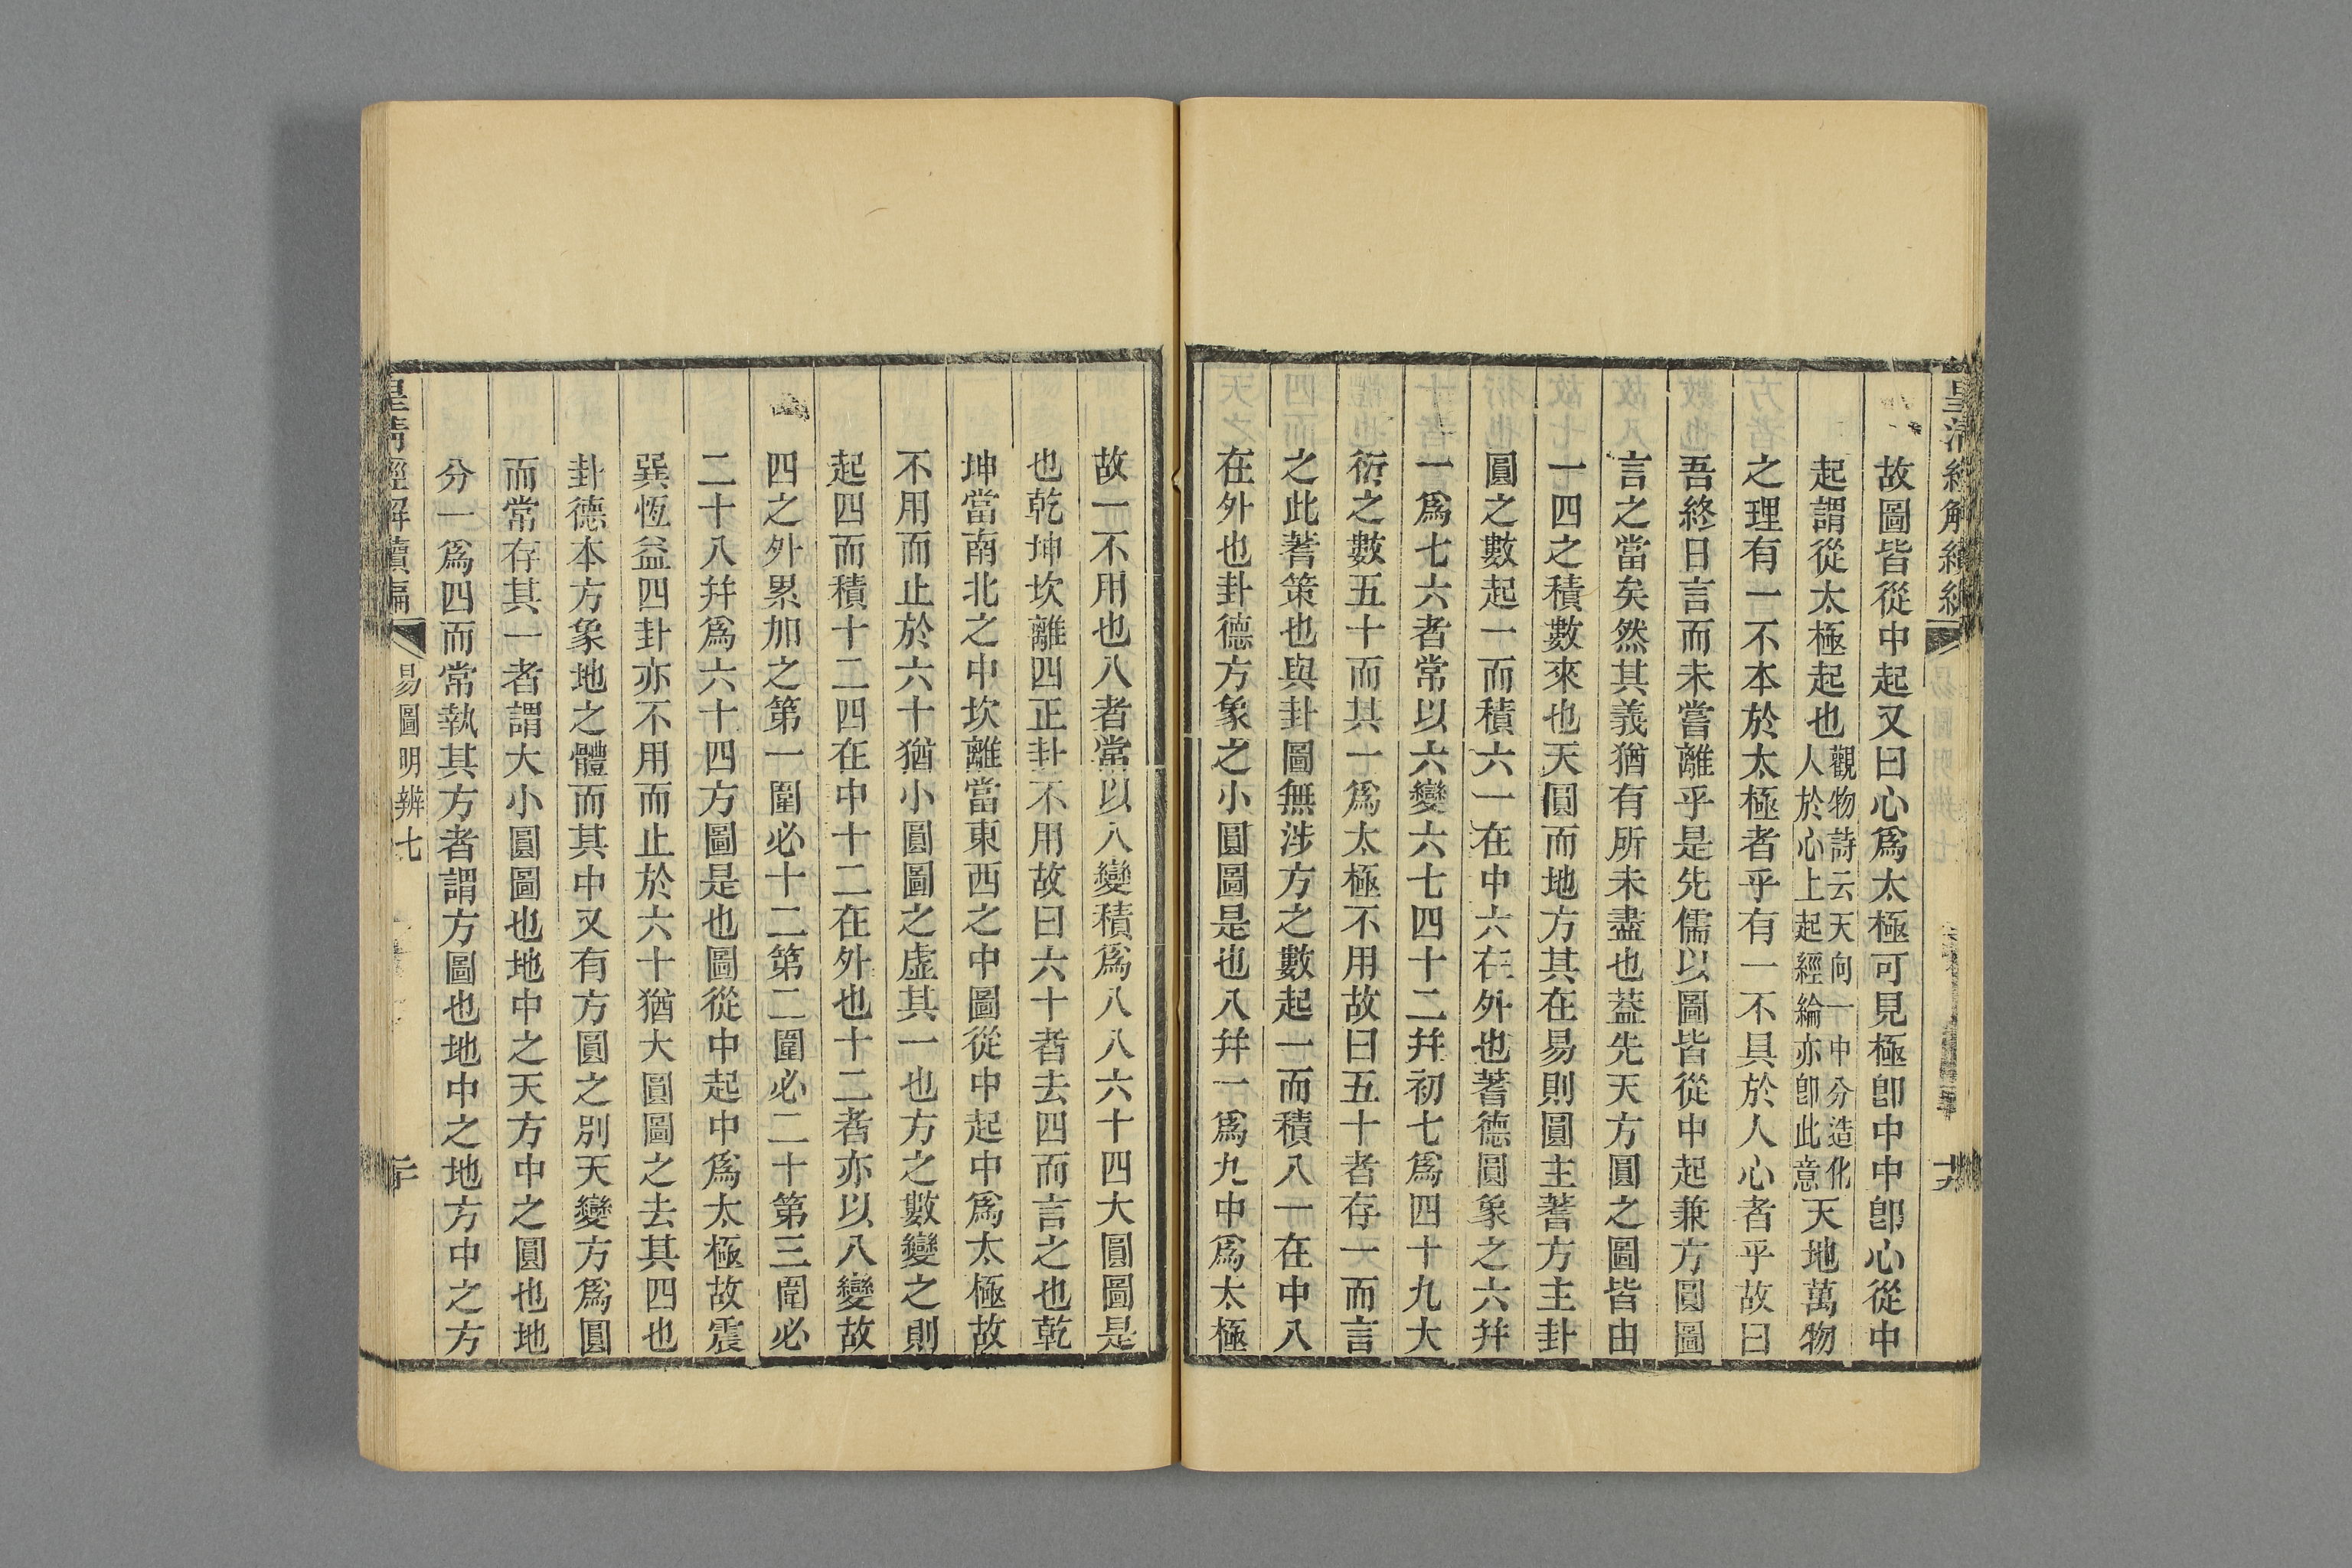 故圖皆從中起又曰心爲太極可見極卽中中卽心從中
起謂從太極起也觀物詩云天向一中分造化人於心上起經綸亦卽此意天地萬物
之理有一不本於太極者乎有一不具於人心者乎故曰
吾終日言而未嘗離乎是先儒以圖皆從中起兼方圓圖
言之當矣然其義猶有所未盡也葢先天方圓之圖皆由
一四之積數來也天圓而地方其在易則圓主蓍方主卦
圓之數起一而積六一在中六在外也蓍德圓象之六并
一爲七六者常以六變六七四十二并初七爲四十九大
衍之數五十而其一爲太極不用故曰五十者存一而言
之此蓍策也與卦圖無涉方之數起一而積八一在中八
在外也卦德方象之小圓圖是也八并一爲九中爲太極
故一不用也八者常以八變積爲八八六十四大圓圖是
也乾坤坎離四正卦不用故曰六十者去四而言之也乾
坤當南北之中坎離當東西之中圖從中起中爲太極故
不用而止於六十猶小圓圖之虛其一也方之數變之則
起四而積十二四在中十二在外也十二者亦以八變故
四之外累加之第一圍必十二第二圍必二十第三圍必
二十八并爲六十四方圖是也圖從中起中爲太極故震
巽恆益四卦亦不用而止於六十猶大圓圖之去其四也
卦德本方象地之體而其中又有方圓之別天變方爲圓
而常存其一者謂大小圓圖也地中之天方中之圓也地
分一爲四而常執其方者謂方圖也地中之地方中之方
皇清經解續編
易圖明辨七